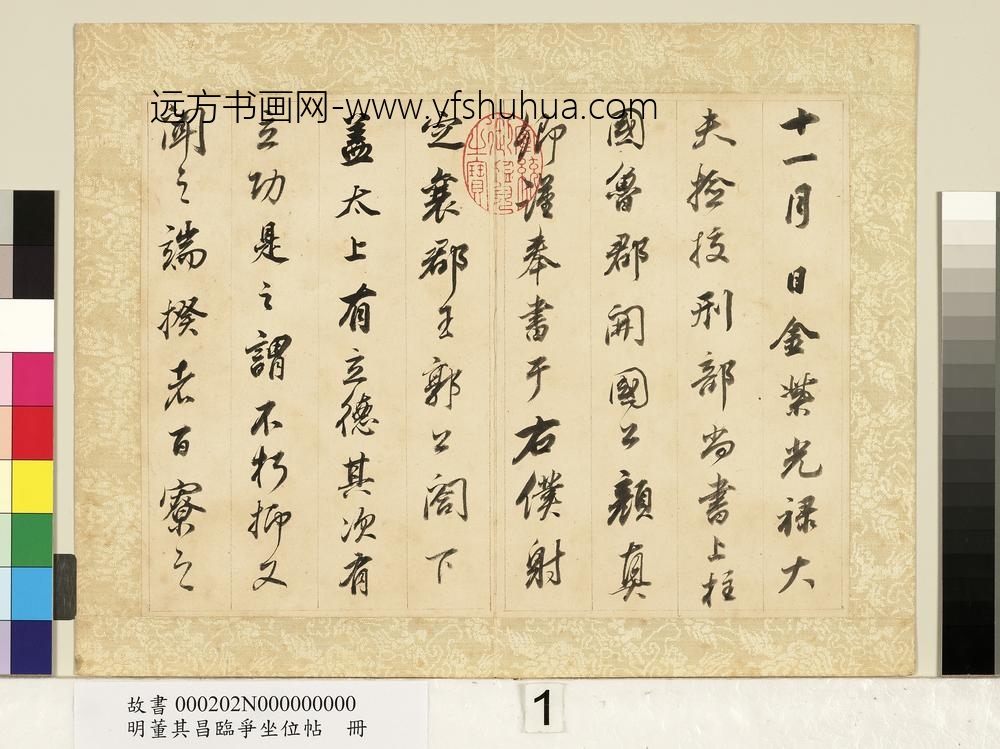 远方书画网-www.yfshuhua.com
十一月日金紫光禄大
夫撿挍刑部尚書上柱
國魯郡開國公顏真
卿謹奉書于右僕射
定襄郡王郭公閤下
盖太上有立德其次有
立功是之謂不朽抑又
聞之端揆者百寮之
宣統御覽之寶
故書 000202N000000000
明董其昌臨爭坐位帖 冊
1